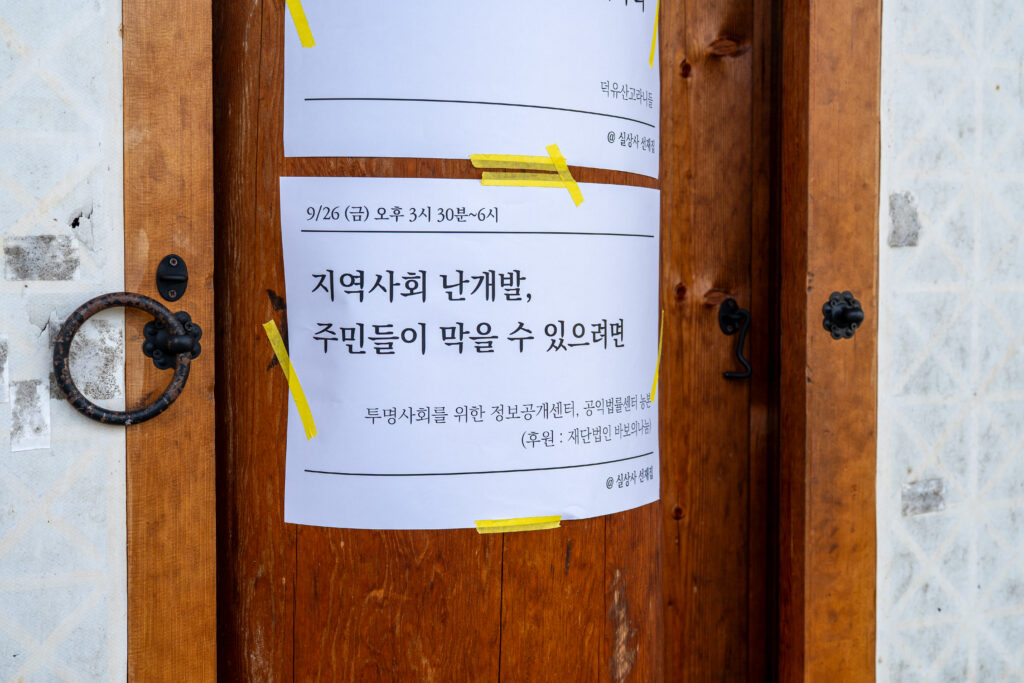 덕유산고라니들
@ 실상사 선재집
9/26 (금) 오후 3시 30분~6시
지역사회 난개발,
주민들이 막을 수 있으려면
투명사회를 위한 정보공개센터, 공익법률센터 농본
(후원 : 재단법인 바보의나눔)
@ 실상사 선재집